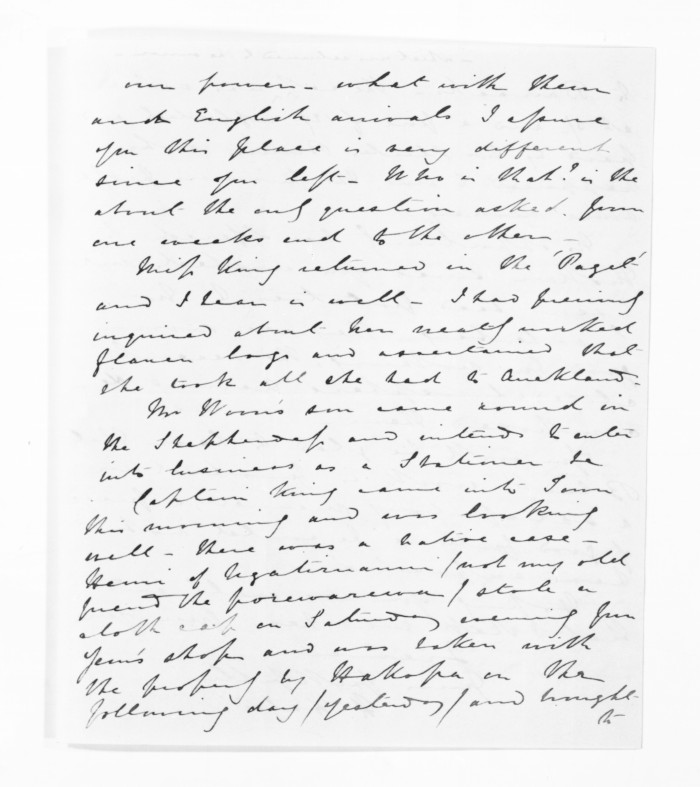 our power - what with them
and English arrivals I assure
you this place is very different
since you left - Who is that? is the
about the only question asked from
one weeks end to the other -
Miss King returned in the 'Paget'
and I hear is well - I had previously
inquired about her neatly worked
bags and ascertained that
she took all she had to Auckland -
Mr Woon's son came round in
the Shepherdess and intends to enter
into business as a Stationer &c
Captain King came into Town
this morning and was looking
well - there was a native case -
Hemi of Ngatiruanui (not my old
friend the porewarewa) stole a
cloth cap on Saturday evening from
shop and was taken with
the property by Hakopa on the
following day (yesterday) and brought
to